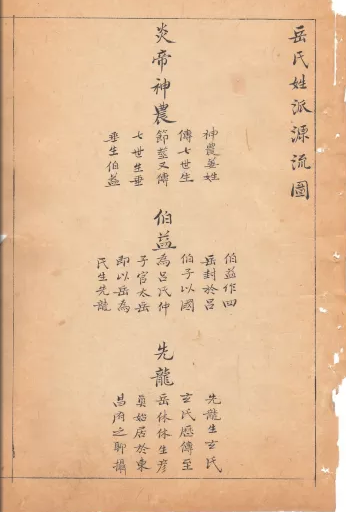 岳氏姓派源流圖
炎帝神農
神農姜姓
傳七世生
節莖又傳
七世生垂
垂生伯益
伯益
伯益作四
岳封於呂
伯子以國
為呂氏仲
子官太岳
即以岳為
氏生先龍
先龍
先龍生玄氏
玄氏歷傳至
岳休休生彦
真始居於東
昌府之聊攝